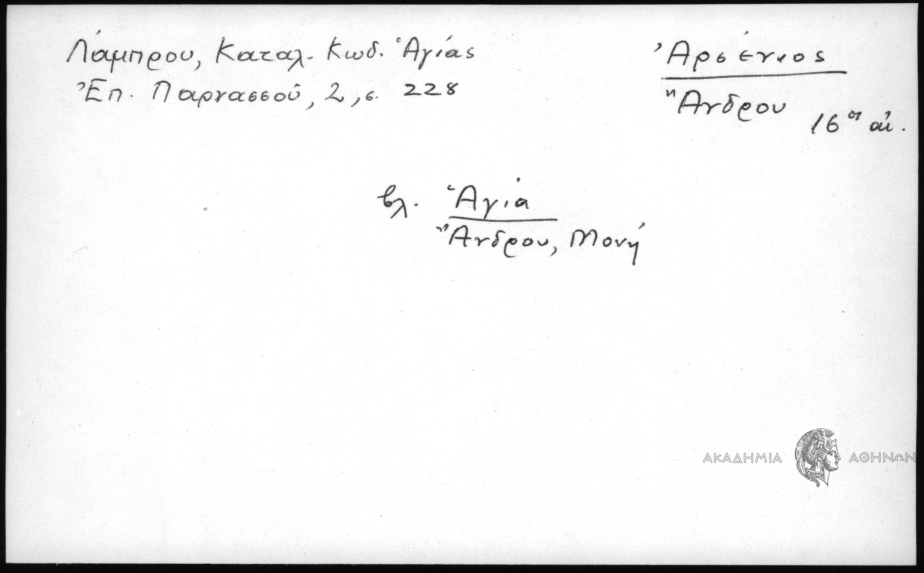 Λάμπρου, Καταλ. Κωδ. Ἁγίας
Ἐπ. Παρνασσοῦ, 2, σ. 228
Ἀρσένιος
Ἄνδρου
16ος αἰ.
βλ. Ἁγία
Ἄνδρου, Μονή
ΑΚΑΔΗΜΙΑ ΑΘΗΝΩΝ